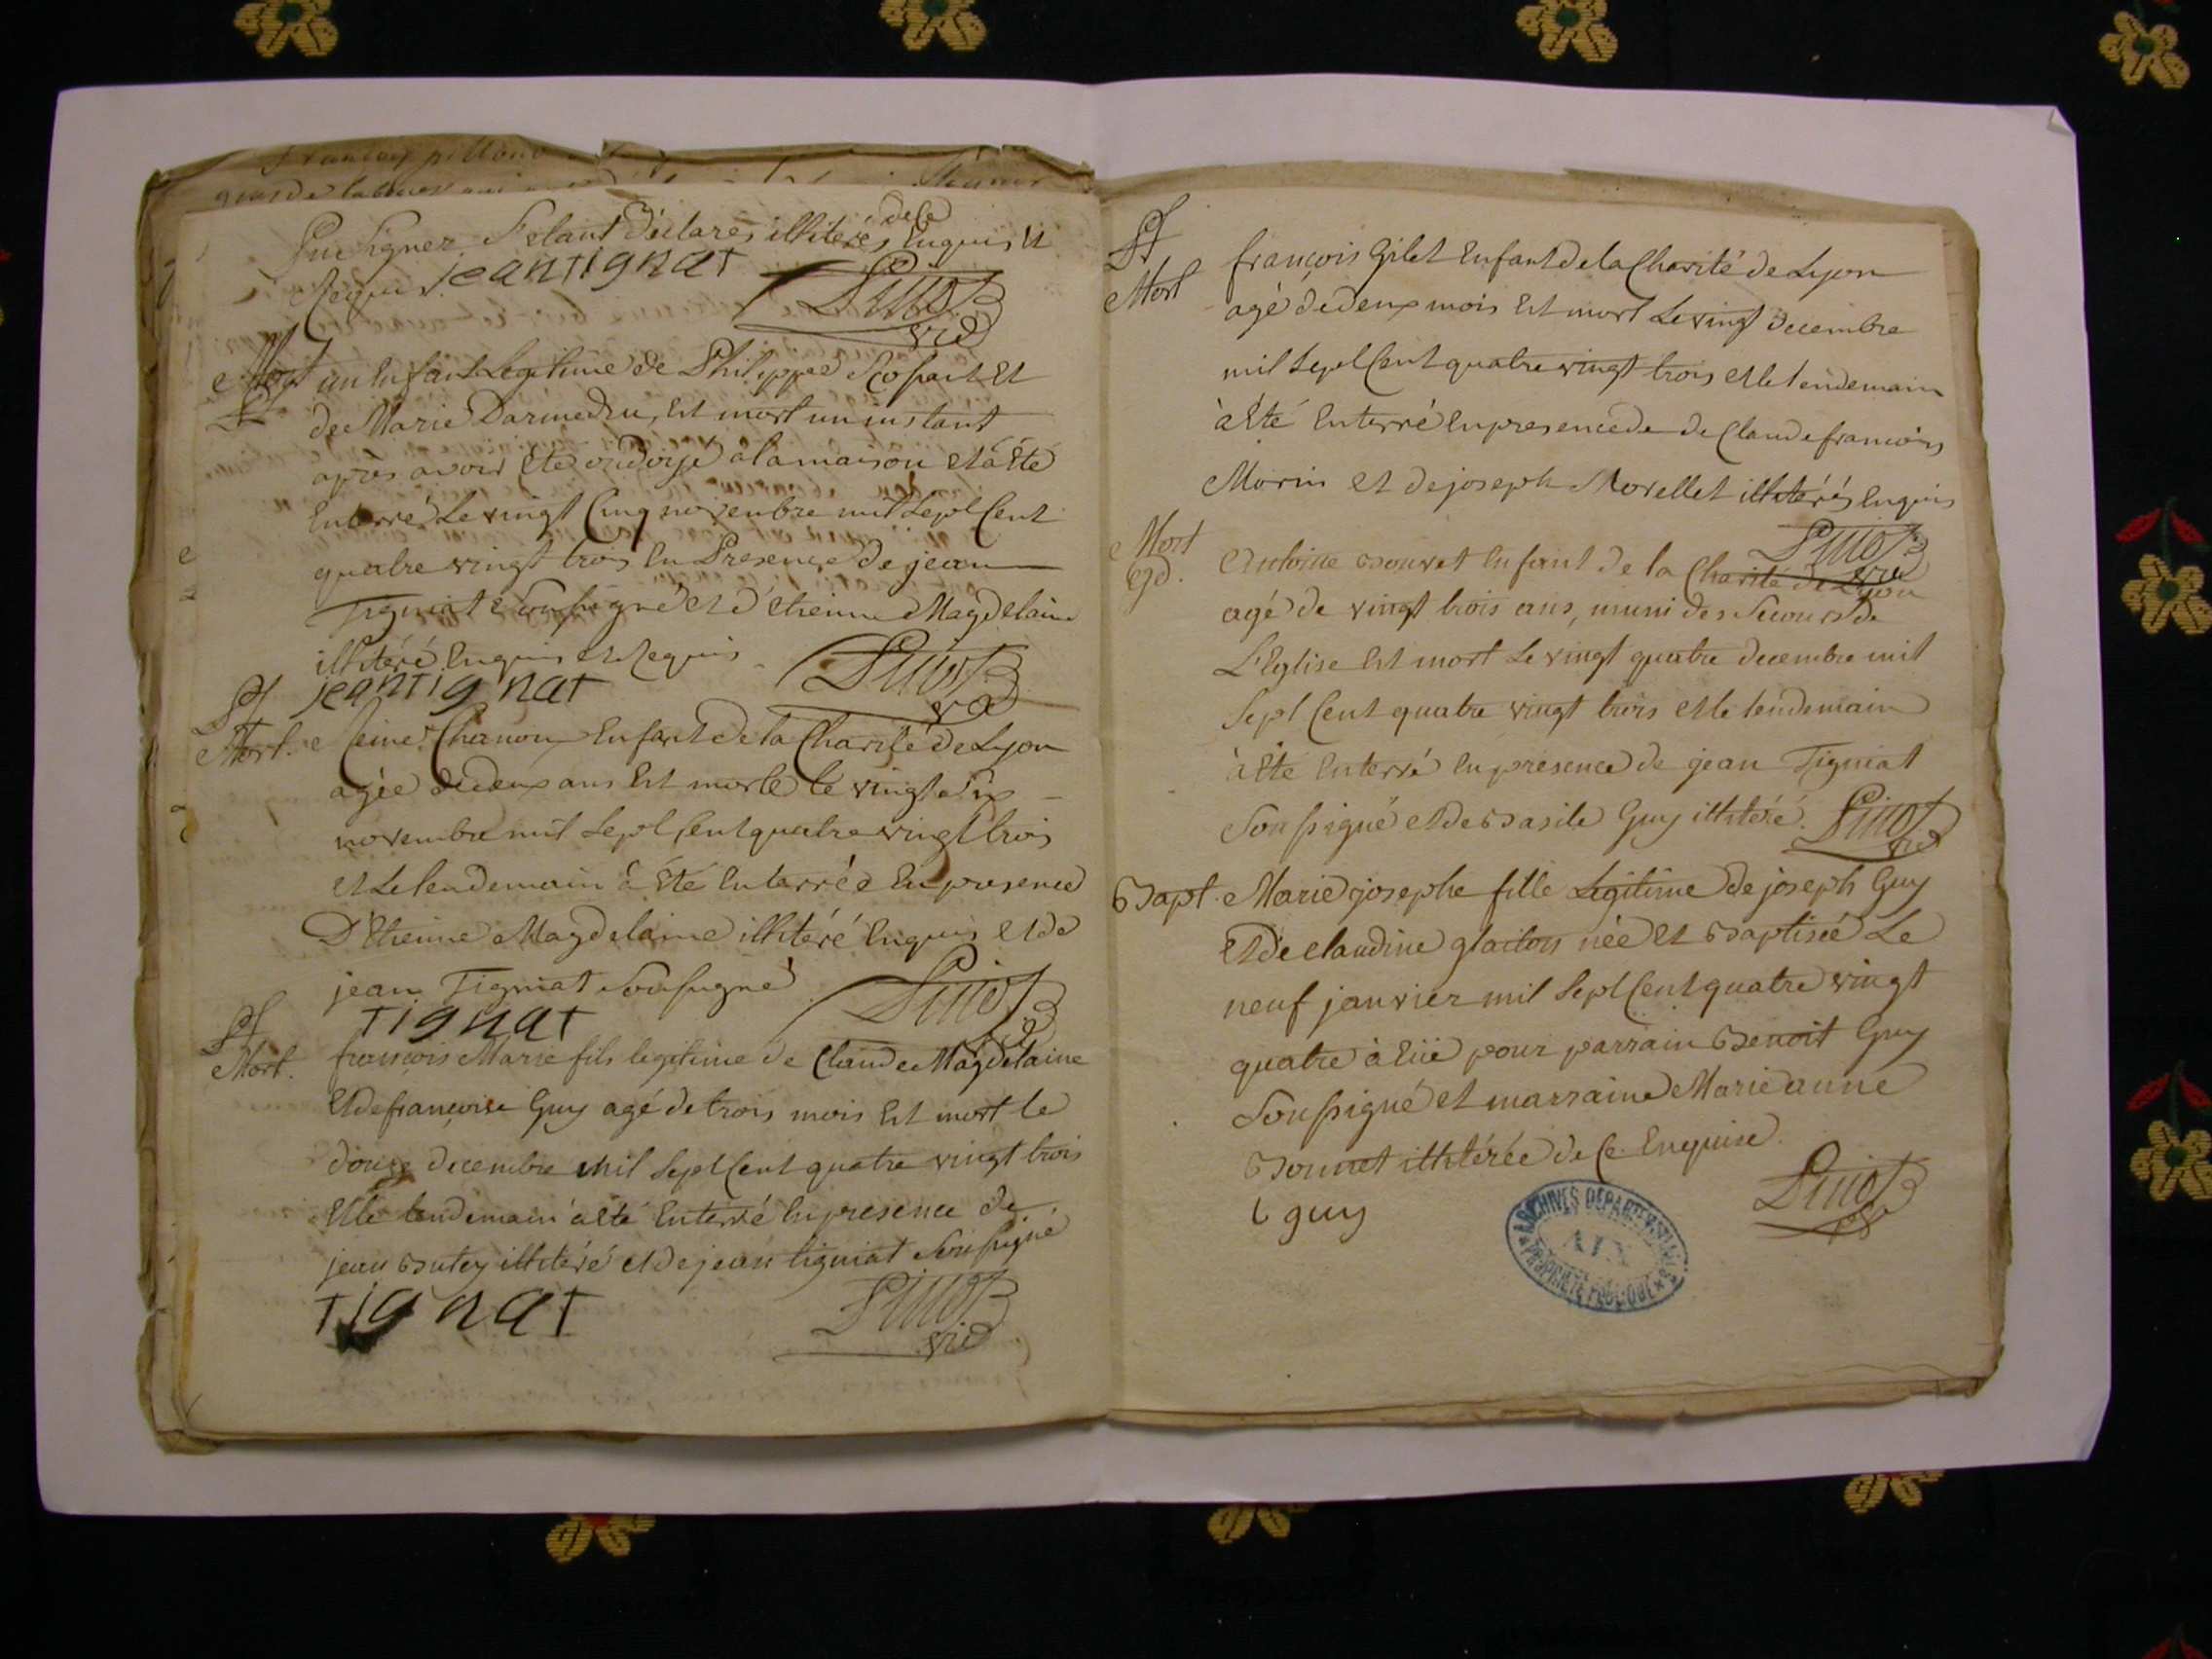 pu signer s'étant déclarés illitérés de ce Enquis et
Requis. jean tignat
Pinot
vic
Mort un Enfant Légitime de Philippe et
pt de Marie Darmedru, Est mort un instant
après avoir été ondoyé a la maison et à été
Enterré Le vingt Cinq novembre mil Sept Cent
quatre vingt trois En Presence de jean
Tigniat Soussigné et d'Etienne Magdelaine
illitéré Enquis et Requis
jean tignat Pinot
vic
pt
Mort. Reine Chanon Enfant de la Charité de Lyon
agée de deux ans Est morte le vingt six
novembre mil Sept Cent quatre vingt trois
et Le lendemain à été Enterrée En presence
D'Etienne Magdelaine illitéré Enquis et de
jean Tigniat Soussigné Pinot
vic
tignat
pt
Mort. françois Marie fils legitime de Claude Magdelaine
et de françoise Guy agé de trois mois Est mort le
douze decembre mil Sept Cent quatre vingt trois
et le lendemain à été Enterré En presence de
jean Butey illitéré et de jean tigniat Soussigné
tignat Pinot
vic
pt
Mort françois Gilet Enfant de la Charité de Lyon
agé de deux mois Est mort Le vingt decembre
mil Sept Cent quatre vingt trois et le lendemain
à été Enterré En presence de de Claude françois
Morin et de joseph Morellet illitérés Enquis
Pinot
vic
Mort
gd. Antoine Bouvet Enfant de la Charité de Lyon
agé de vingt trois ans, muni des Secours de
L'Eglise Est mort Le vingt quatre decembre mil
Sept Cent quatre vingt trois et le lendemain
à été Enterré En presence de jean Tigniat
Soussigné et de Basile Guy illitéré. Pinot
vic
Bapt. Marie josephe fille Légitime de joseph Guy
et de claudine glaiton née et Baptisée Le
neuf janvier mil Sept Cent quatre vingt
quatre à Eüe pour parrain Benoit Guy
Soussigné et marraine Marie anne
Bonnet illitérée de Ce Enquise.
b guy Pinot
vic
ARCHIVES DEPARTEMENTALES
AIN
PROPRIETE PUBLIQUE